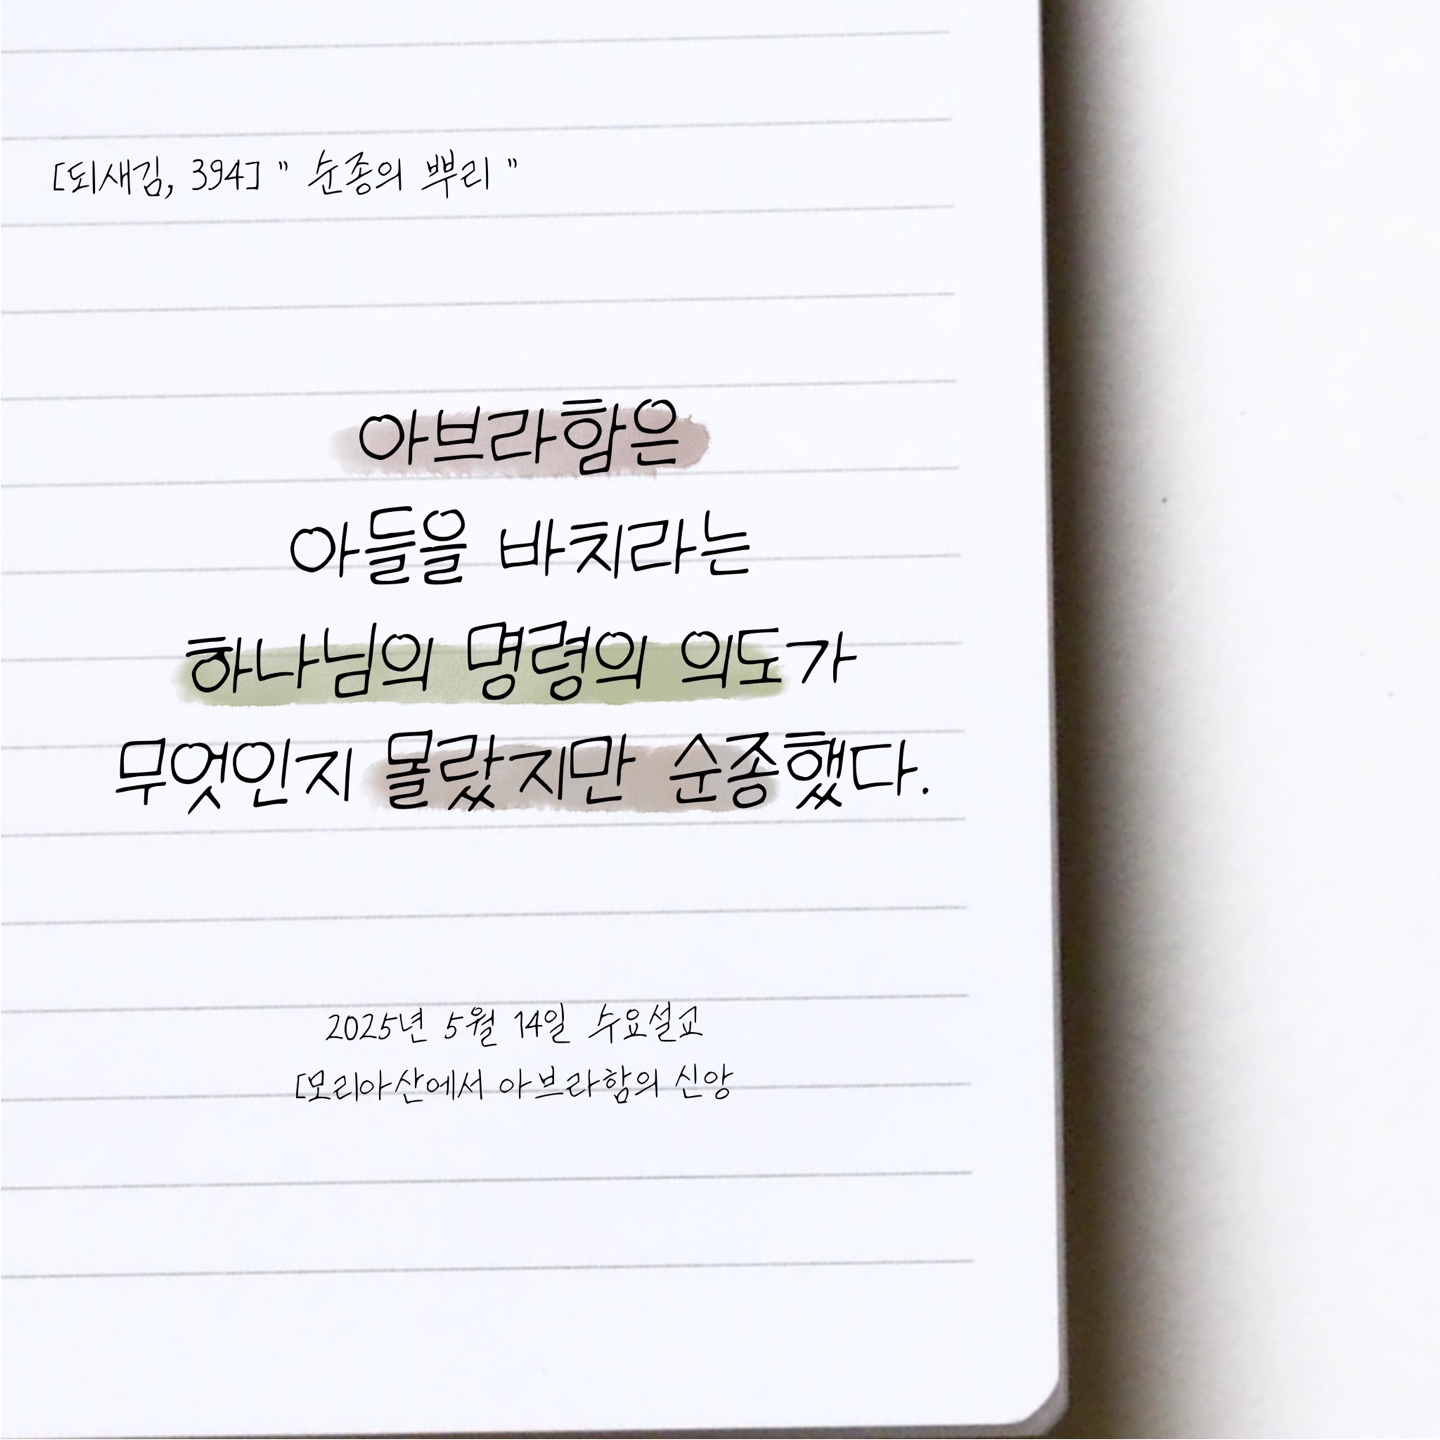 [되새김, 394] " 순종의 뿌리 "
아브라함은
아들을 바치라는
하나님의 명령의 의도가
무엇인지 몰랐지만 순종했다.
2025년 5월 14일 수요설교
[모리아산에서 아브라함의 신앙